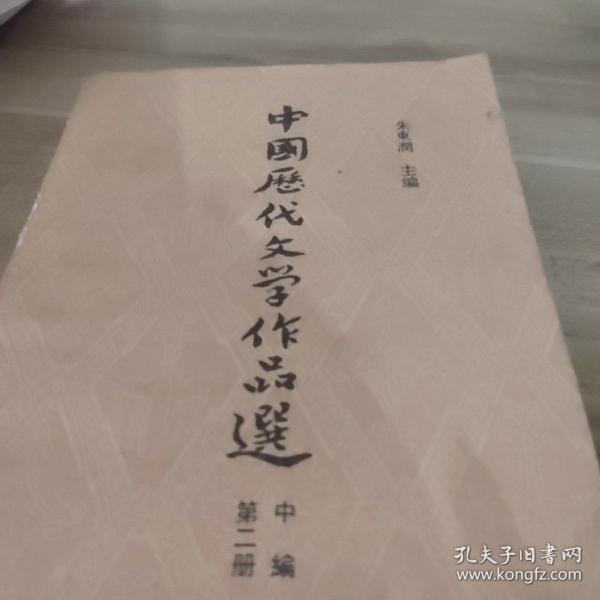 朱東潤 主编
中國歷代文学作品選
中編
第二册
孔夫子旧書网
www.kongfz.com